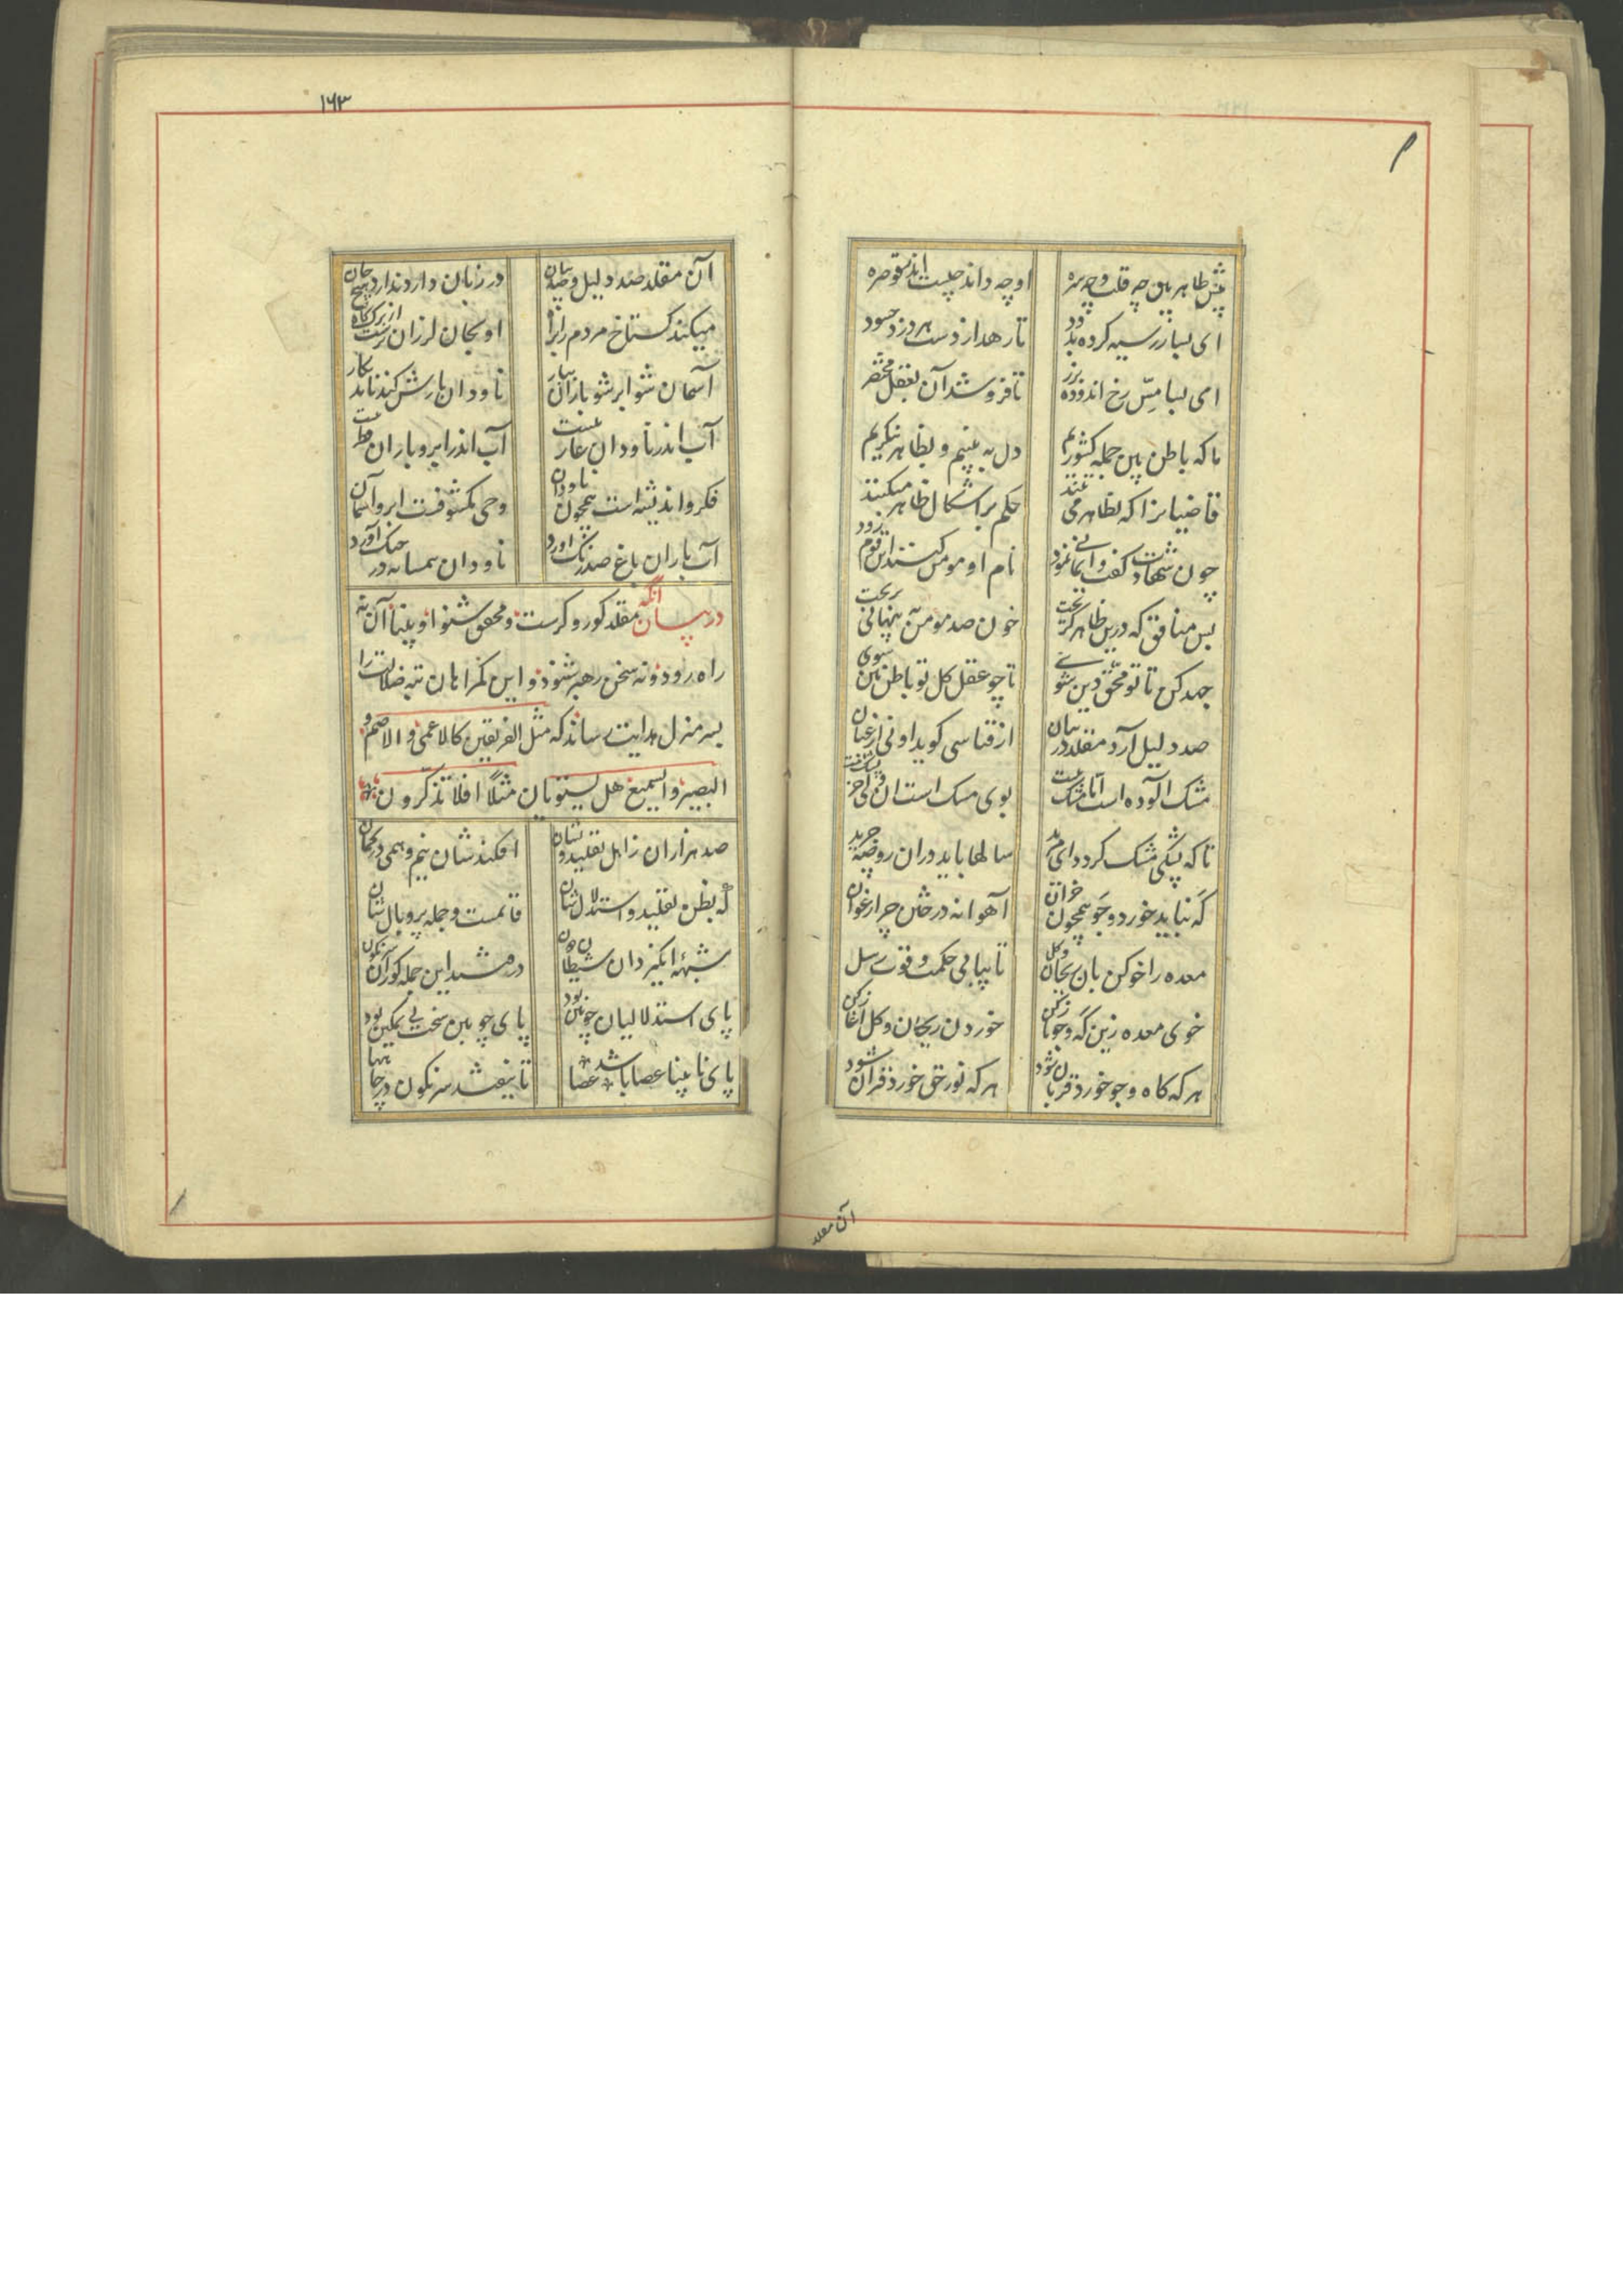 پیش ظاهر بین چه قلب و چه سره او چه داند چیست اندر قوصره
ای بسا زر سیه کرده بدود تا رهد از دست هر دزد حسود
ای بسا مسّ رخ اندوده بزر تا فروشد آن بعقل مختصر
ما که باطن بین جمله کشوریم دل به بینیم و بظاهر ننکریم
قاضیانرا که بظاهر می تنند حکم بر اشکال ظاهر میکنند
چون شهادت گفت و ایمانی نمود نام او مومن کنند این قوم زود
بس منافق که درین ظاهر گریخت خون صد مومن به پنهانی بریخت
جهد کن تا تو محقق دین شوی تا چو عقل کل تو باطن بین شوی
صد دلیل آرد مقلد در بیان از قیاسی کوید او نی از عیان
مشک آلوده است اما مشک نیست بوی مسک است آن ولی جز پشک نیست
تا که پشکی مشک گردد ای مرید سالها باید در ان روضه چرید
که نباید خورد و جو همچون خران آهوانه در ختن چر ارغوان
معده را خو کن بان ریحان و کل تا بیابی حکمت و قوت رسل
خوی معده زین که و جو باز کن خوردن ریحان و کل آغاز کن
هر که کاه و جو خورد قربان شود هر که نور حق خورد قرآن شود
آن مقلد
۱۶۳
آن مقلد صد دلیل و صد بیان در زبان دارد ندارد هیچ جان
میکند کستاخ مردم را براه او بجان لرزان ترست از برک کاه
آسمان شو ابر شو باران ببار ناودان بارش کند ناید بکار
آب اندر ناودان عاریتست آب اندر ابر و باران فطرتست
فکر و اندیشه است همچون ناودان وحی مکشوفست ابر و آسمان
آب باران باغ صد رنک آورد ناودان همسایه در جنک آورد
در بیان آنکه مقلد کور و کرست و محقق شنوا و بینا آن نه
راه رود و نه سخن رهبر شنود و این کمراهان تیه ضلالت را
بسر منزل هدایت رساند که مثل الفریقین کالاعمی و الاصم و
البصیر و السمیع هل یستویان مثلاً افلا تذکرون
صد هزاران ز اهل تقلید و نشان افکندشان نیم وهمی در کمان
که بظن تقلید و استدلالشان قائمست و جمله پر و بالشان
شبهه انکیزد آن شیطان دون در فتند این جمله کوران سرنکون
پای استدلالیان چوبین بود پای چوبین سخت بی تمکین بود
پای نابینا عصا باشد عصا تا نیفتد سرنکون در چاهها